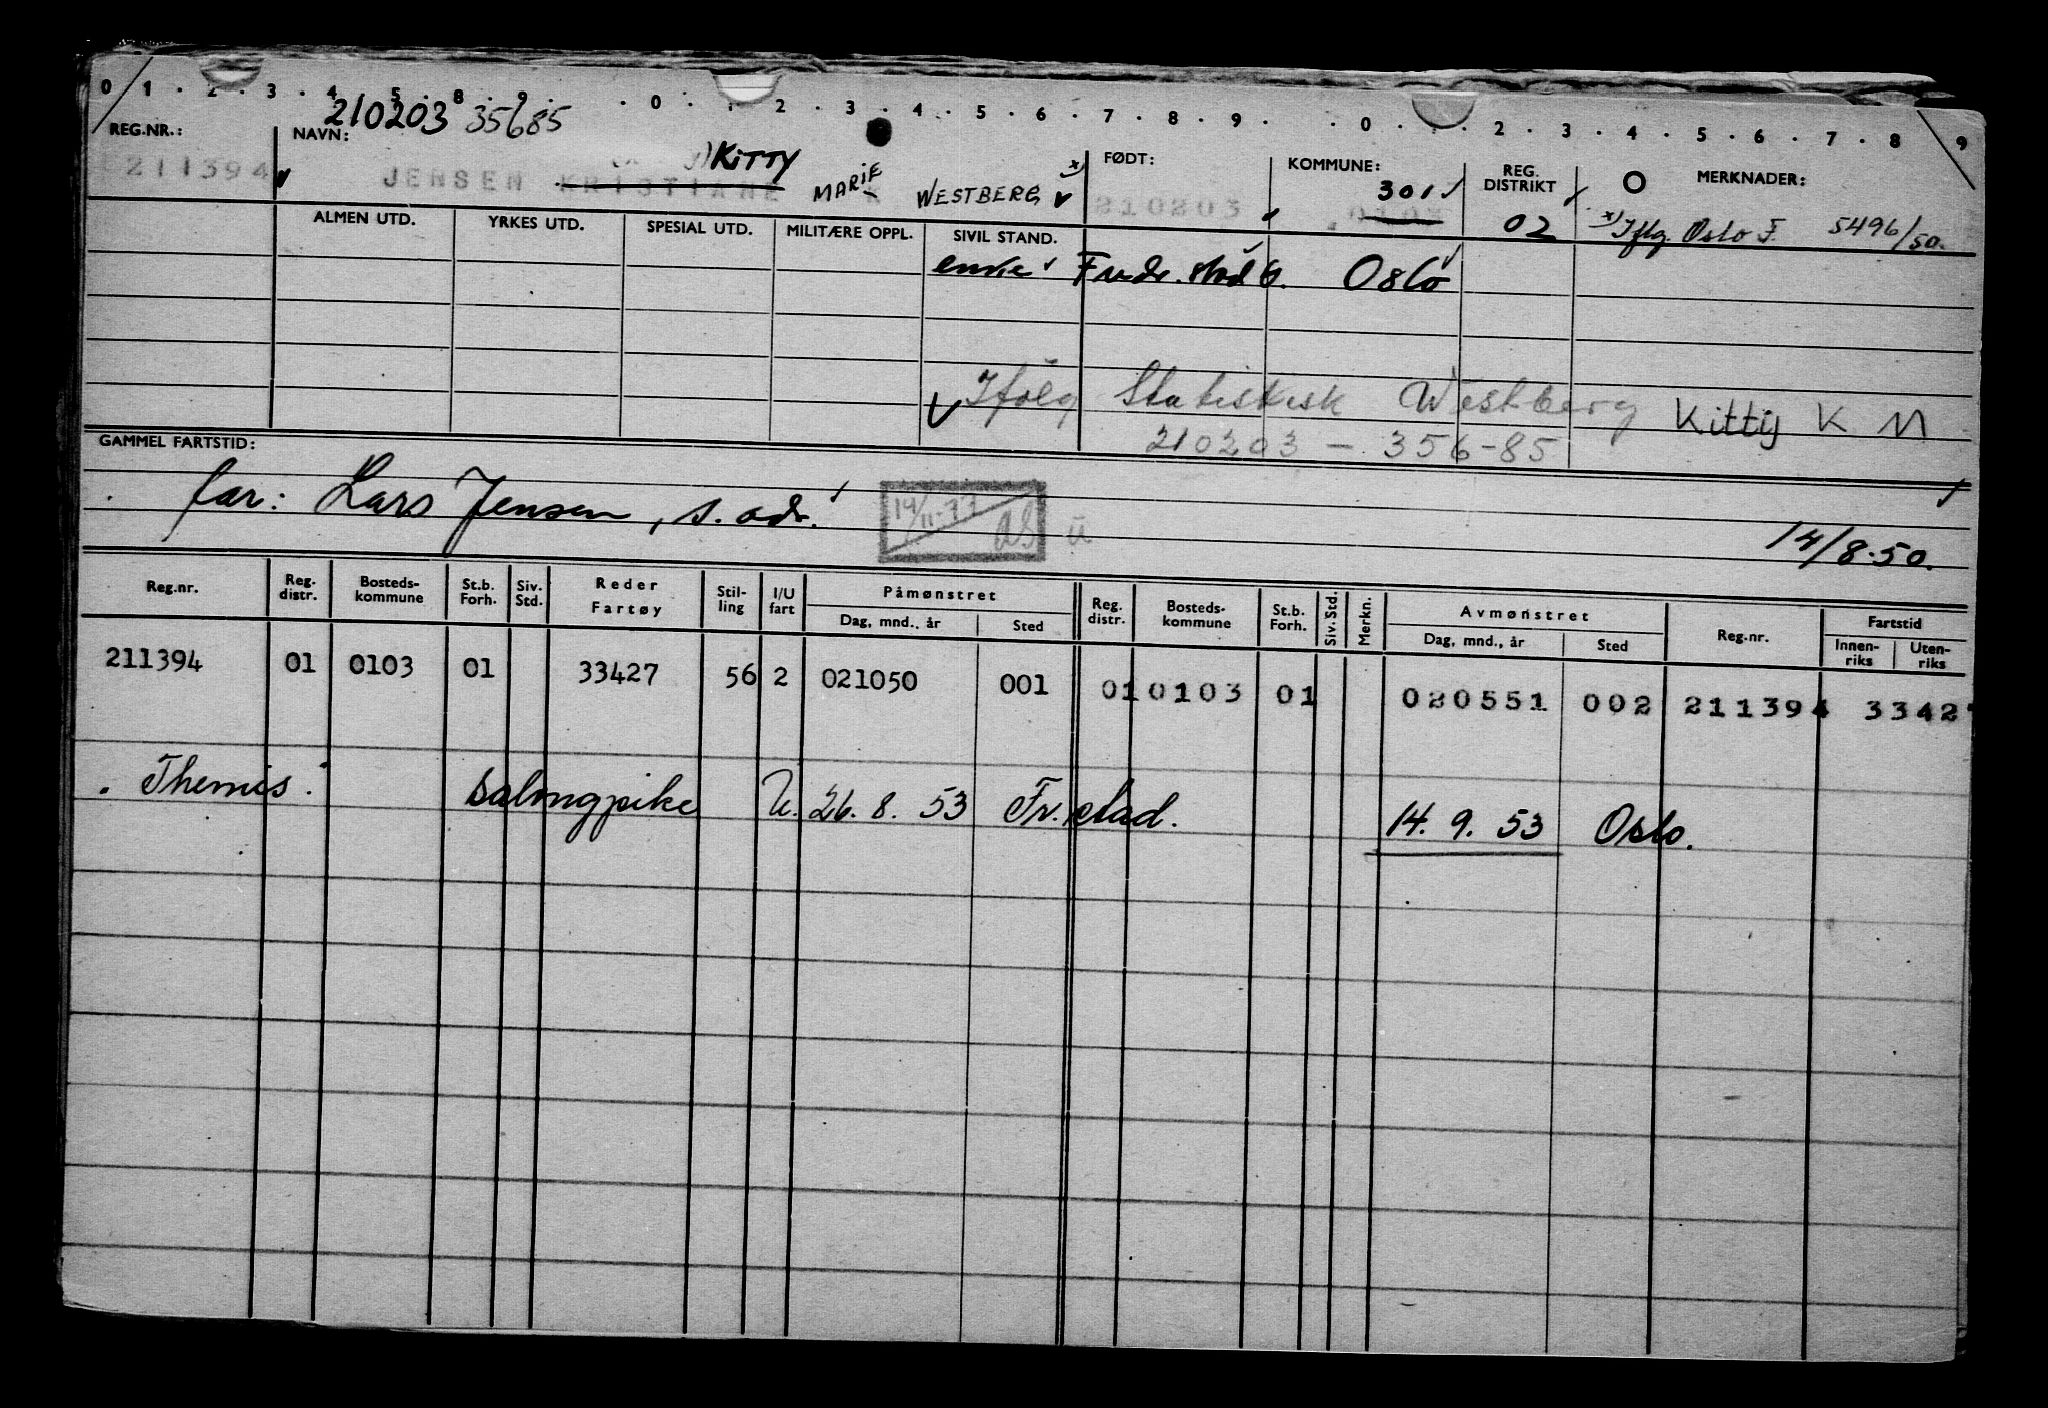 0 1 . 2 . 3 . 4 . 5 . 8 . 9 . . 0 . 1 . 2 . 3 . 4 . 5 . 6 . 7 . 8 . 9 . . 0 . 1 . 2 . 3 . 4 . 5 . 6 . 7 . 8 9
210203 35685
REG.NR.: NAVN: FØDT: KOMMUNE: REG. DISTRIKT MERKNADER:
211394 JENSEN KRISTIANE x) KITTY MARIE K WESTBERG x) 210203 301 0103 02 x) Iflg. Oslo F. 5496/50.
ALMEN UTD. YRKES UTD. SPESIAL UTD. MILITÆRE OPPL. SIVIL STAND.
enke Fredr.stad b. Oslo
Ifølg Statistisk Westberg Kitty K M
210203 - 356-85
GAMMEL FARTSTID:
far: Lars Jensen, s. adr.
14/11-77
14/8-50.
Reg.nr. Reg. distr. Bosteds-kommune St.b. Forh. Siv. Std. Reder Fartøy Stil-ling I/U fart Påmønstret Dag, mnd., år Sted Reg. distr. Bosteds-kommune St.b. Forh. Siv. Std. Merkn. Avmønstret Dag, mnd., år Sted Reg.nr. Fartstid Innen-riks Uten-riks
211394 01 0103 01 33427 56 2 021050 001 01 0103 01 020551 002 211394 3342
"Themis" salongpike U. 26. 8. 53 Fr.stad. 14. 9. 53 Oslo.